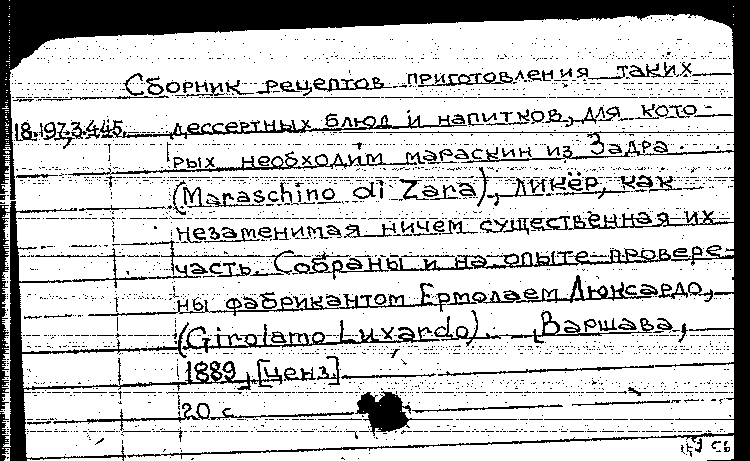 Сборник рецептов приготовления таких
18.197.3.445. дессертных блюд и напитков, для кото-
рых необходим мараскин из Задра
(Maraschino di Zara), ликёр, как
незаменимая ничем существенная их
часть. Собраны и на опыте провере-
ны фабрикантом Ермолаем Люксардо,
(Girolamo Luxardo). Варшава,
1889, [ценз]
20 с.